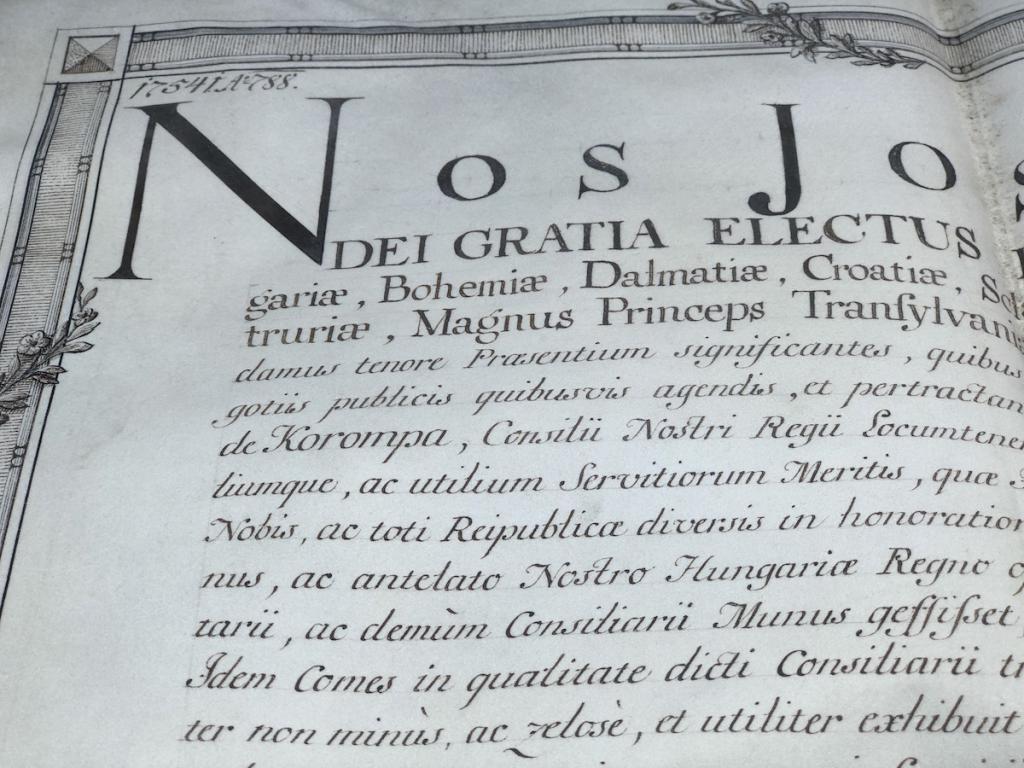 17541A:788.
NOS JOS
DEI GRATIA ELECTUS
gariæ, Bohemiæ, Dalmatiæ, Croatiæ, Scla
truriæ, Magnus Princeps Tranſylvani
damus tenore Præsentium significantes, quibus
gotiis publicis quibusvis agendis, et pertractan
de Korompa, Consilii Nostri Regii Locumtenen
liumque, ac utilium Servitiorum Meritis, quæ
Nobis, ac toti Reipublicæ diversis in honoration
nus, ac antelato Nostro Hungariæ Regno
tarii, ac demùm Consiliarii Munus geſſiſset
Idem Comes in qualitate dicti Consiliarii
ter non minùs, ac zelosè, et utiliter exhibuit